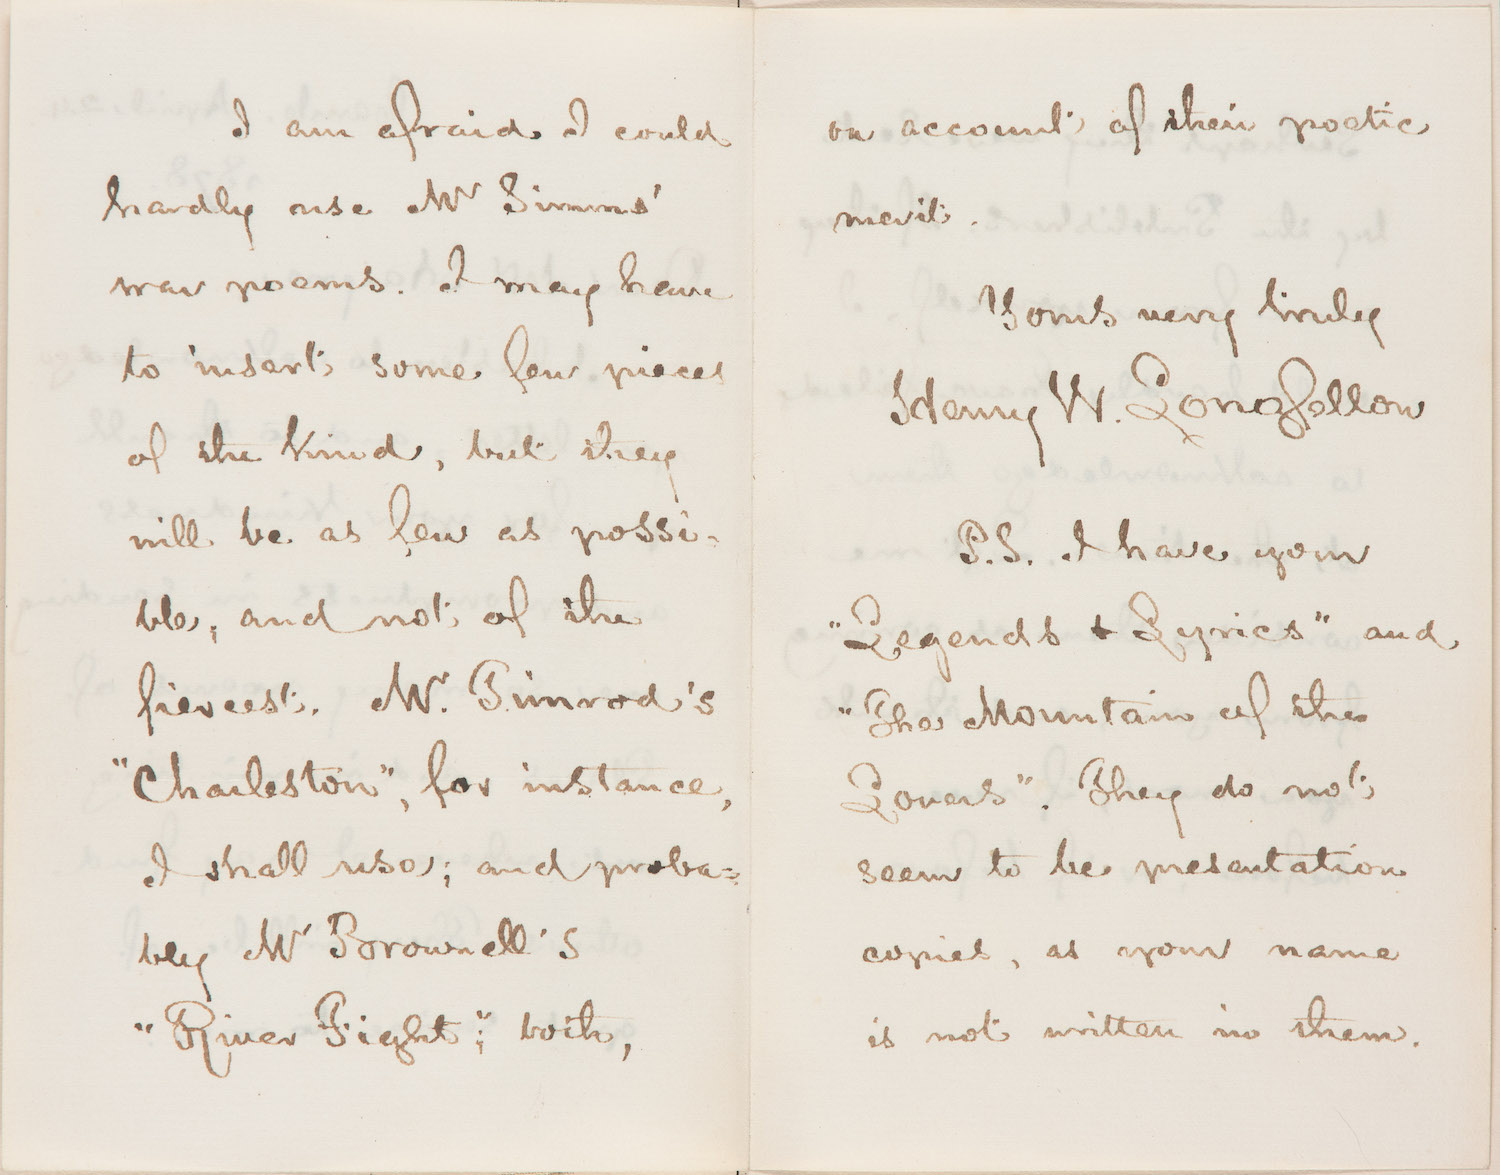 I am afraid I could
hardly use Mr Simms'
war poems. I may have
to insert some few pieces
of the kind, but they
will be as few as possi-
ble; and not of the
fiercest. Mr. Timrod's
"Charleston", for instance,
I shall use; and proba=
bly Mr Brownell's
"River Fight"; both,
on account of their poetic
merit.
Yours very truly
Henry W. Longfellow
P.S. I have your
"Legends & Lyrics" and
"The Mountain of the
Lovers". They do not
seem to be presentation
copies, as your name
is not written in them.